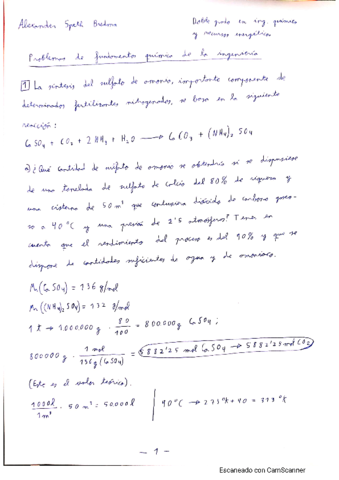 Alexander Spath Bredow
Doble grado en ing. química
y recursos energéticos
Problemas de fundamentos químicos de la ingeniería
1) La síntesis del sulfato de amonio, importante componente de
determinados fertilizantes nitrogenados, se basa en la siguiente
reacción:
CaSO₄ + CO₂ + 2 NH₃ + H₂O → CaCO₃ + (NH₄)₂ SO₄
a) ¿Qué cantidad de sulfato de amonio se obtendría si se dispusiera
de una tonelada de sulfato de calcio del 80% de riqueza y
una cisterna de 50 m³ que contuviera dióxido de carbono gaseo-
so a 40 °C y una presión de 2'5 atmósferas? Tener en
cuenta que el rendimiento del proceso es del 90% y que se
dispone de cantidades suficientes de agua y de amoníaco.
Mr(CaSO₄) = 136 g/mol
Mr((NH₄)₂SO₄) = 132 g/mol
1 t → 1.000000 g · 80/100 = 800.000 g CaSO₄;
800000 g · 1 mol/136g(CaSO₄) = 5882'25 mol CaSO₄ → 5882'25 mol CO₂
(Este es el valor teórico).
1000l/1m³ · 50 m³ = 50000 l
40°C → 273°K + 40 = 313°K
- 1 -
Escaneado con CamScanner